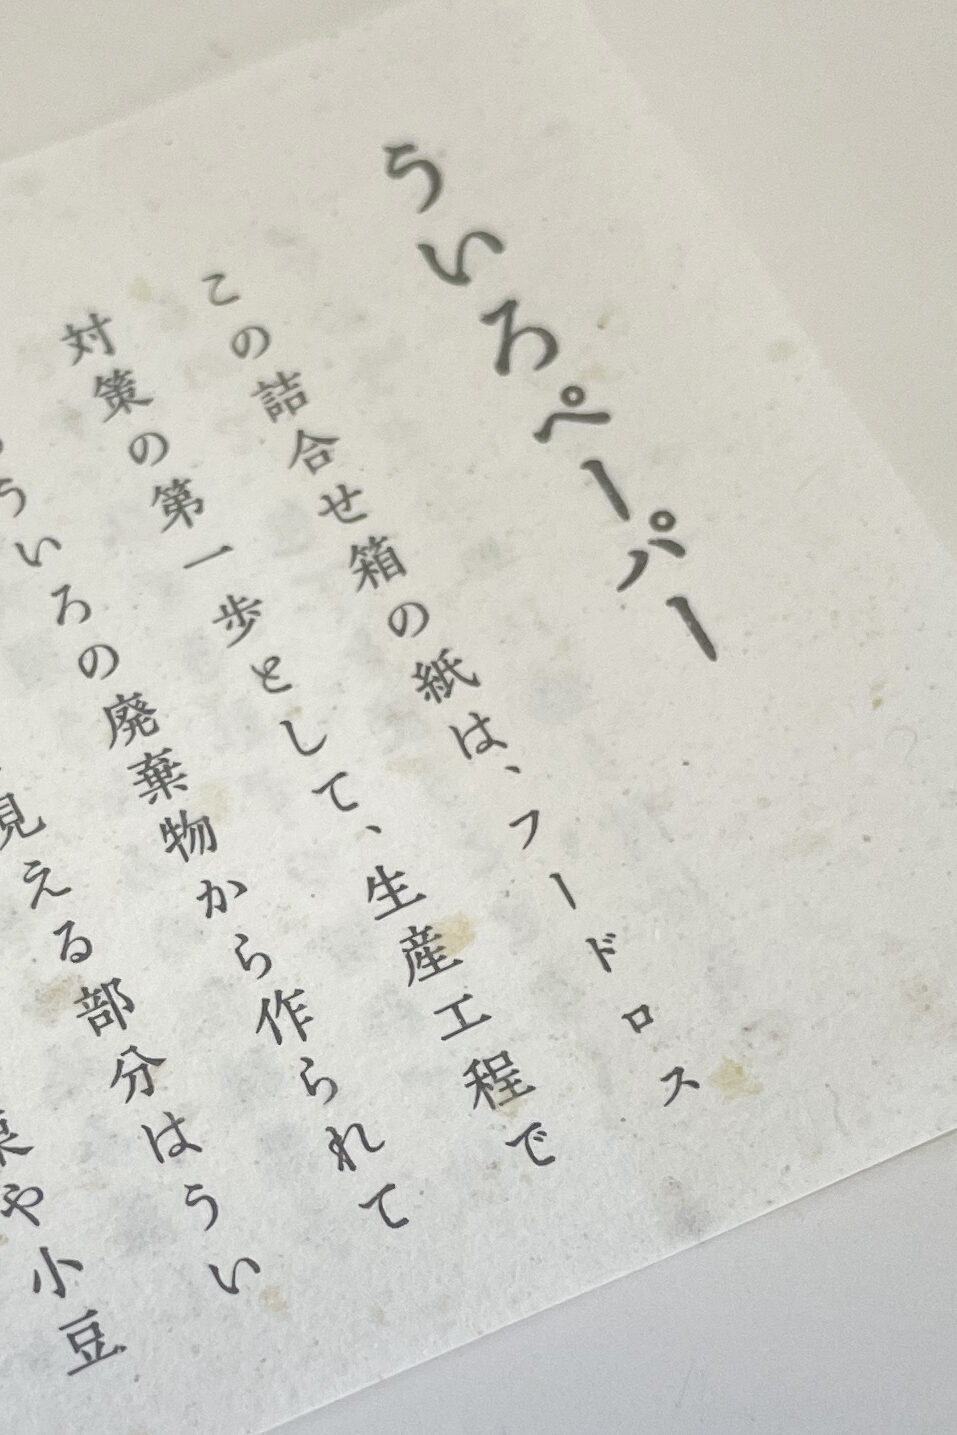 ういろペーパー
この詰合せ箱の紙は、フードロス
対策の第一歩として、生産工程で
ういろの廃棄物から作られて
見える部分はうい
や小豆